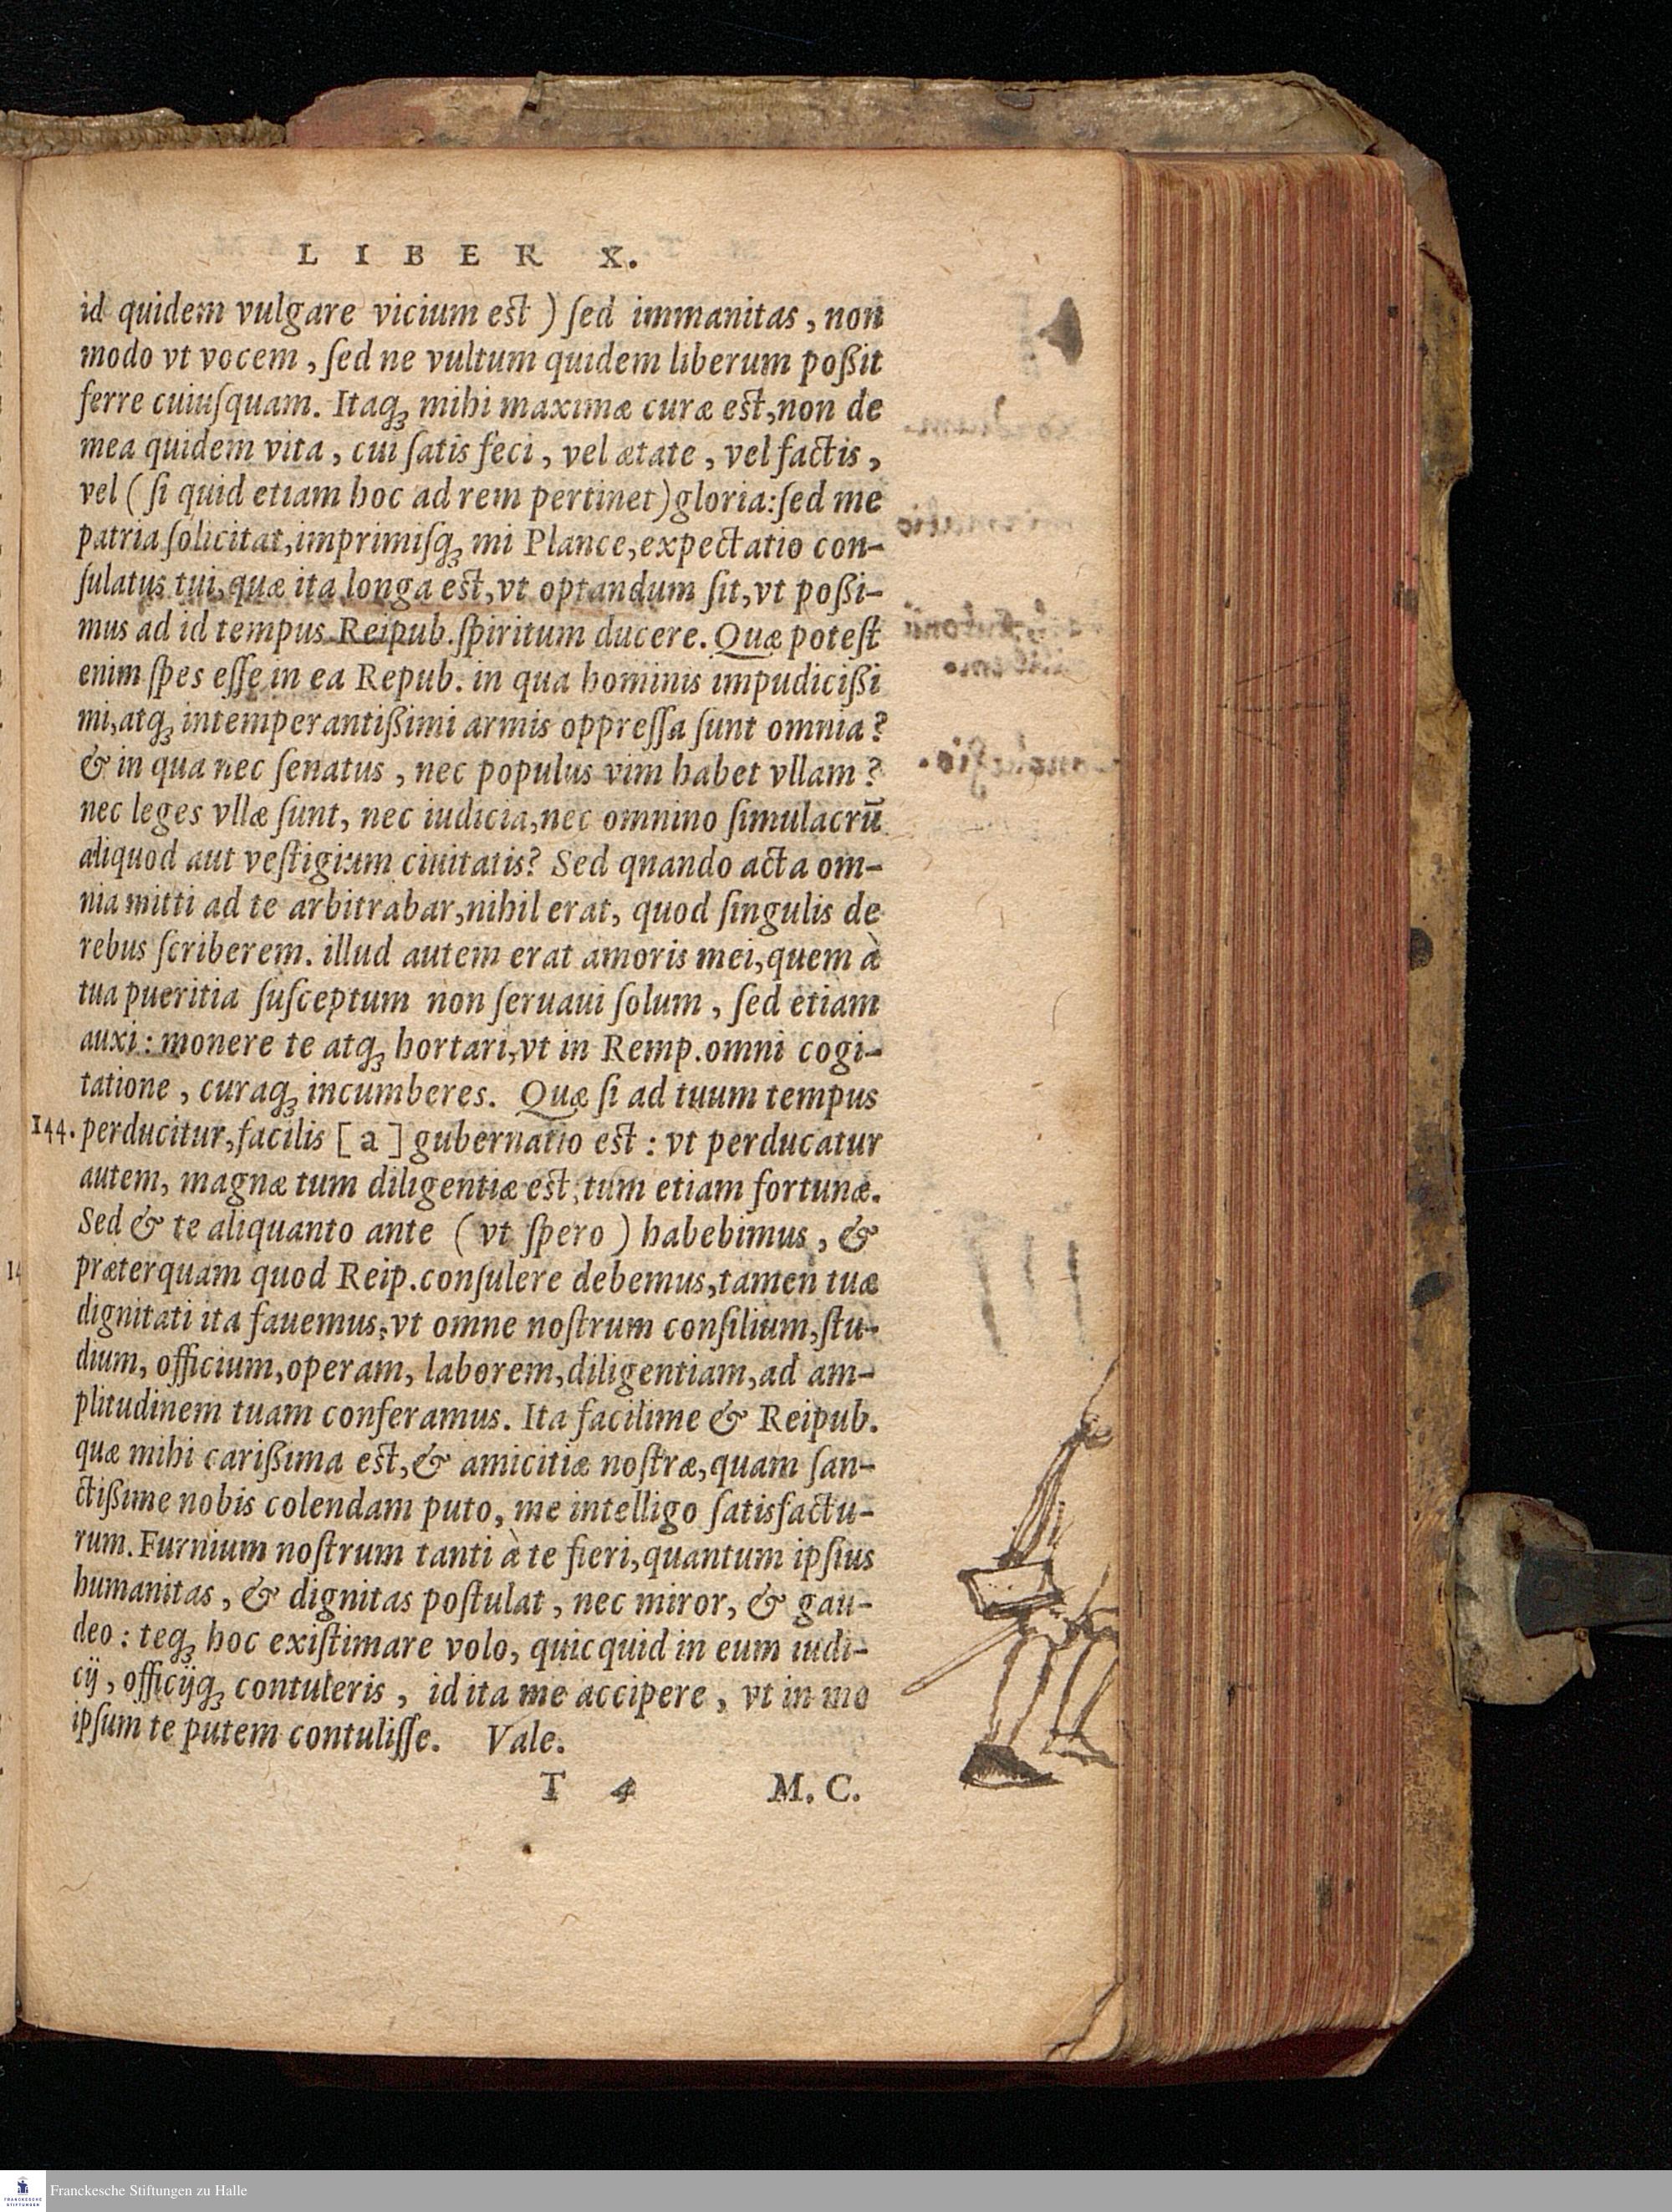 LIBER X.
id quidem vulgare vicium est ) ſed immanitas, non
modo vt vocem, ſed ne vultum quidem liberum poßit
ferre cuiuſquam. Itaqꝫ mihi maximæ curæ est, non de
mea quidem vita, cui ſatis feci, vel ætate, vel factis,
vel ( ſi quid etiam hoc ad rem pertinet) gloria: ſed me
patria ſolicitat, imprimiſqꝫ mi Plance, expectatio con-
ſulatus tui, quæ ita longa est, vt optandum ſit, vt poßi-
mus ad id tempus Reipub. ſpiritum ducere. Quæ poteſt
enim ſpes eſſe in ea Repub. in qua hominis impudicißi
mi, atqꝫ intemperantißimi armis oppreſſa ſunt omnia?
& in qua nec ſenatus, nec populus vim habet vllam?
nec leges vllæ ſunt, nec iudicia, nec omnino ſimulacrū
aliquod aut veſtigium ciuitatis? Sed qnando acta om-
nia mitti ad te arbitrabar, nihil erat, quod ſingulis de
rebus ſcriberem. illud autem erat amoris mei, quem à
tua pueritia ſuſceptum non ſeruaui ſolum, ſed etiam
auxi: monere te atqꝫ hortari, vt in Remp. omni cogi-
tatione, curaqꝫ incumberes. Quæ ſi ad tuum tempus
144. perducitur, facilis [a] gubernatio est: vt perducatur
autem, magnæ tum diligentiæ est, tum etiam fortunæ.
Sed & te aliquanto ante ( vt ſpero ) habebimus, &
præterquam quod Reip. conſulere debemus, tamen tuæ
dignitati ita fauemus, vt omne noſtrum conſilium, ſtu-
dium, officium, operam, laborem, diligentiam, ad am-
plitudinem tuam conferamus. Ita facilime & Reipub.
quæ mihi carißima est, & amicitiæ noſtræ, quam ſan-
ctißime nobis colendam puto, me intelligo ſatisfactu-
rum. Furnium noſtrum tanti à te fieri, quantum ipſius
humanitas, & dignitas poſtulat, nec miror, & gau-
deo: teqꝫ hoc exiſtimare volo, quicquid in eum iudi-
cij, officijqꝫ contuleris, id ita me accipere, vt in me
ipſum te putem contuliſſe. Vale.
T 4 M. C.
Franckesche Stiftungen zu Halle